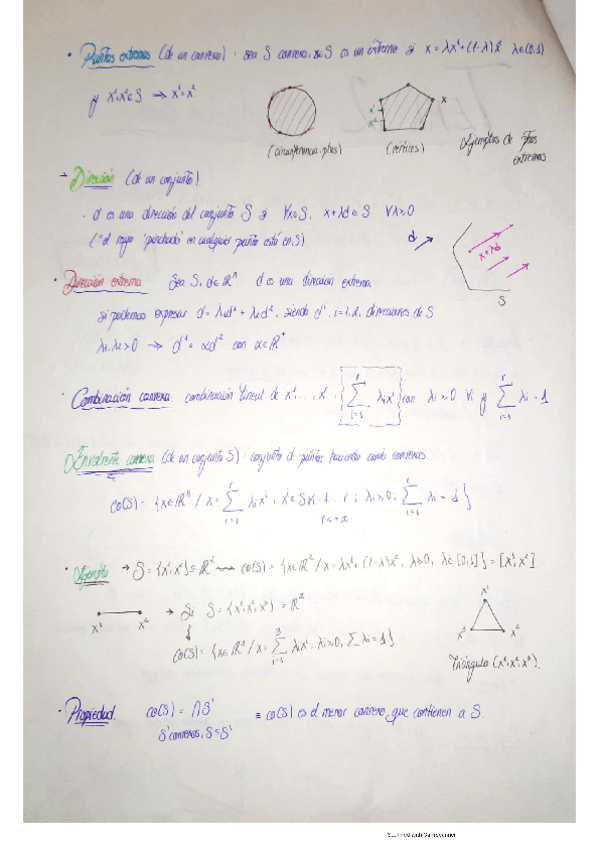 · Puntos extremos (de un convexo): sea S convexo, x∈S es un extremo si x = λx¹+(1-λ)x² λ∈(0,1)
y x¹,x²∈S → x¹=x²
x¹
x²
x
(circunferencia-ptos)
(vértices)
Ejemplos de ptos
extremos
→ Dirección (de un conjunto).
· d es una dirección del conjunto S si ∀x∈S, x+λd∈S ∀λ≥0
("el rayo 'pinchado' en cualquier punto está en S).
d
x+λd
S
· Dirección extrema. Sea S, d∈ℝⁿ d es una dirección extrema
si podemos expresar d = λ₁d¹ + λ₂d², siendo dⁱ, i=1,2, direcciones de S
λ₁,λ₂>0 → d¹ = αd² con α∈ℝ⁺
· Combinación convexa: combinación lineal de x¹,..., xʳ · ∑ᵢ₌₁ʳ λᵢxⁱ con λᵢ≥0 ∀i y ∑ᵢ₌₁ʳ λᵢ=1
Envolvente convexa (de un conjunto S): conjunto d puntos haciendo comb convexas.
co(S) = {x∈ℝⁿ / x = ∑ᵢ₌₁ʳ λᵢxⁱ, xⁱ∈S ∀i=1...r; λᵢ≥0; ∑ᵢ₌₁ʳ λᵢ=1}
r<+∞
· Ejemplo → S = {x¹,x²}⊆ℝ² ⟿ co(S) = {x∈ℝ² / x=λx¹+(1-λ)x², λ≥0, λ∈[0,1]} = [x¹,x²]
x¹ x²
→ Si S={x¹,x²,x³} ⊆ ℝ²
co(S) = {x∈ℝ² / x=∑ᵢ₌₁³ λᵢxⁱ, λᵢ≥0, ∑λᵢ=1}
x¹
x³ x²
Triángulo (x¹,x²,x³).
· Propiedad. co(S) = ⋂S' ≡ co(S) es el menor convexo que contienen a S.
S' convexos, S⊆S'